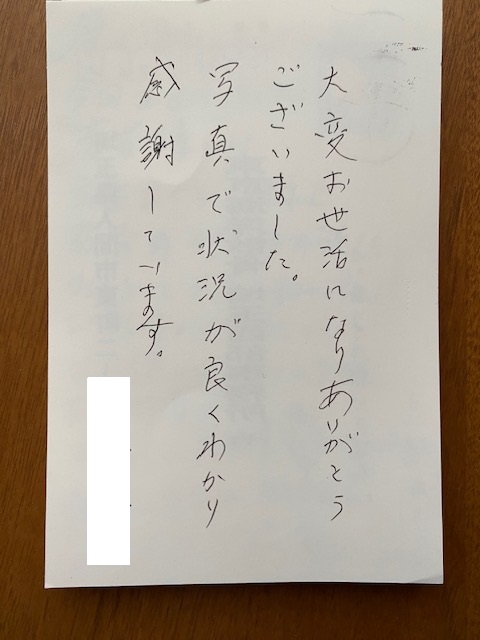 大変お世活になりありがとう
ございました。
写真で状況が良くわかり
感謝しています。